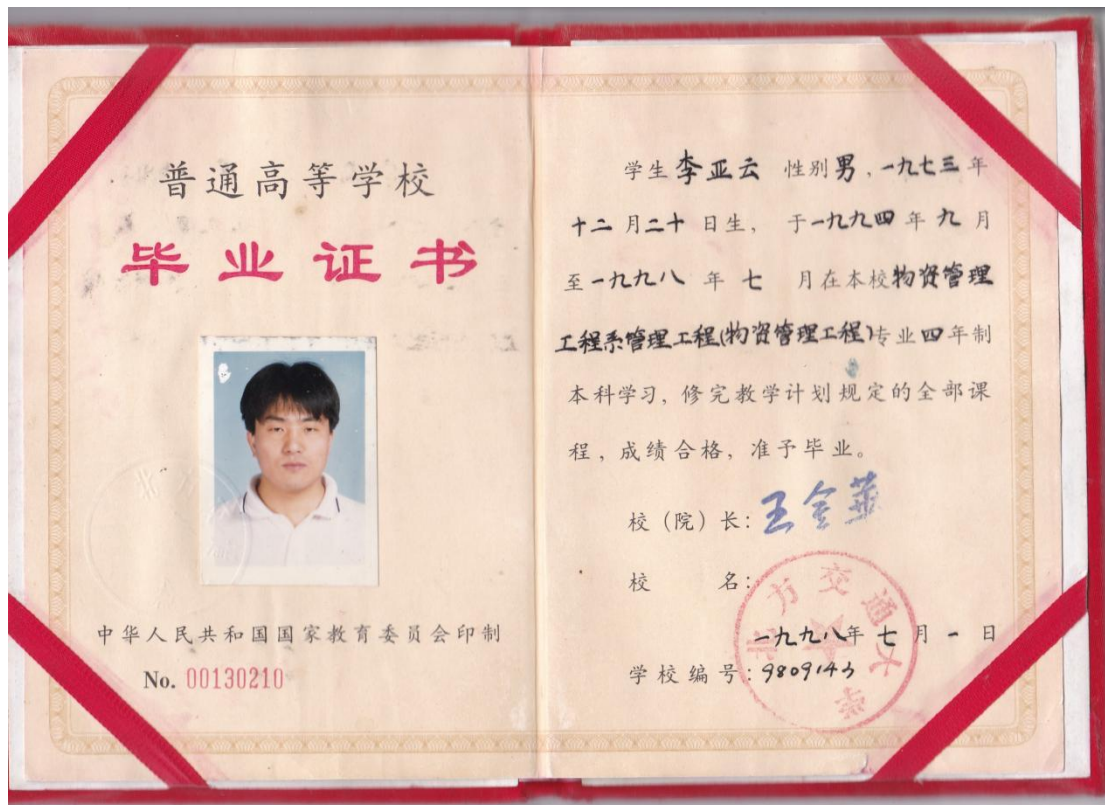 普通高等学校
毕业证书
中华人民共和国国家教育委员会印制
No. 00130210
学生李亚云 性别男，一九七三年
十二月二十日生， 于一九九四年九月
至一九九八年七月在本校物资管理
工程系管理工程(物资管理工程)专业四年制
本科学习，修完教学计划规定的全部课
程，成绩合格，准予毕业。
校（院）长：王金华
校 名：
北方交通大学
一九九八年七月一日
学校编号：9809143